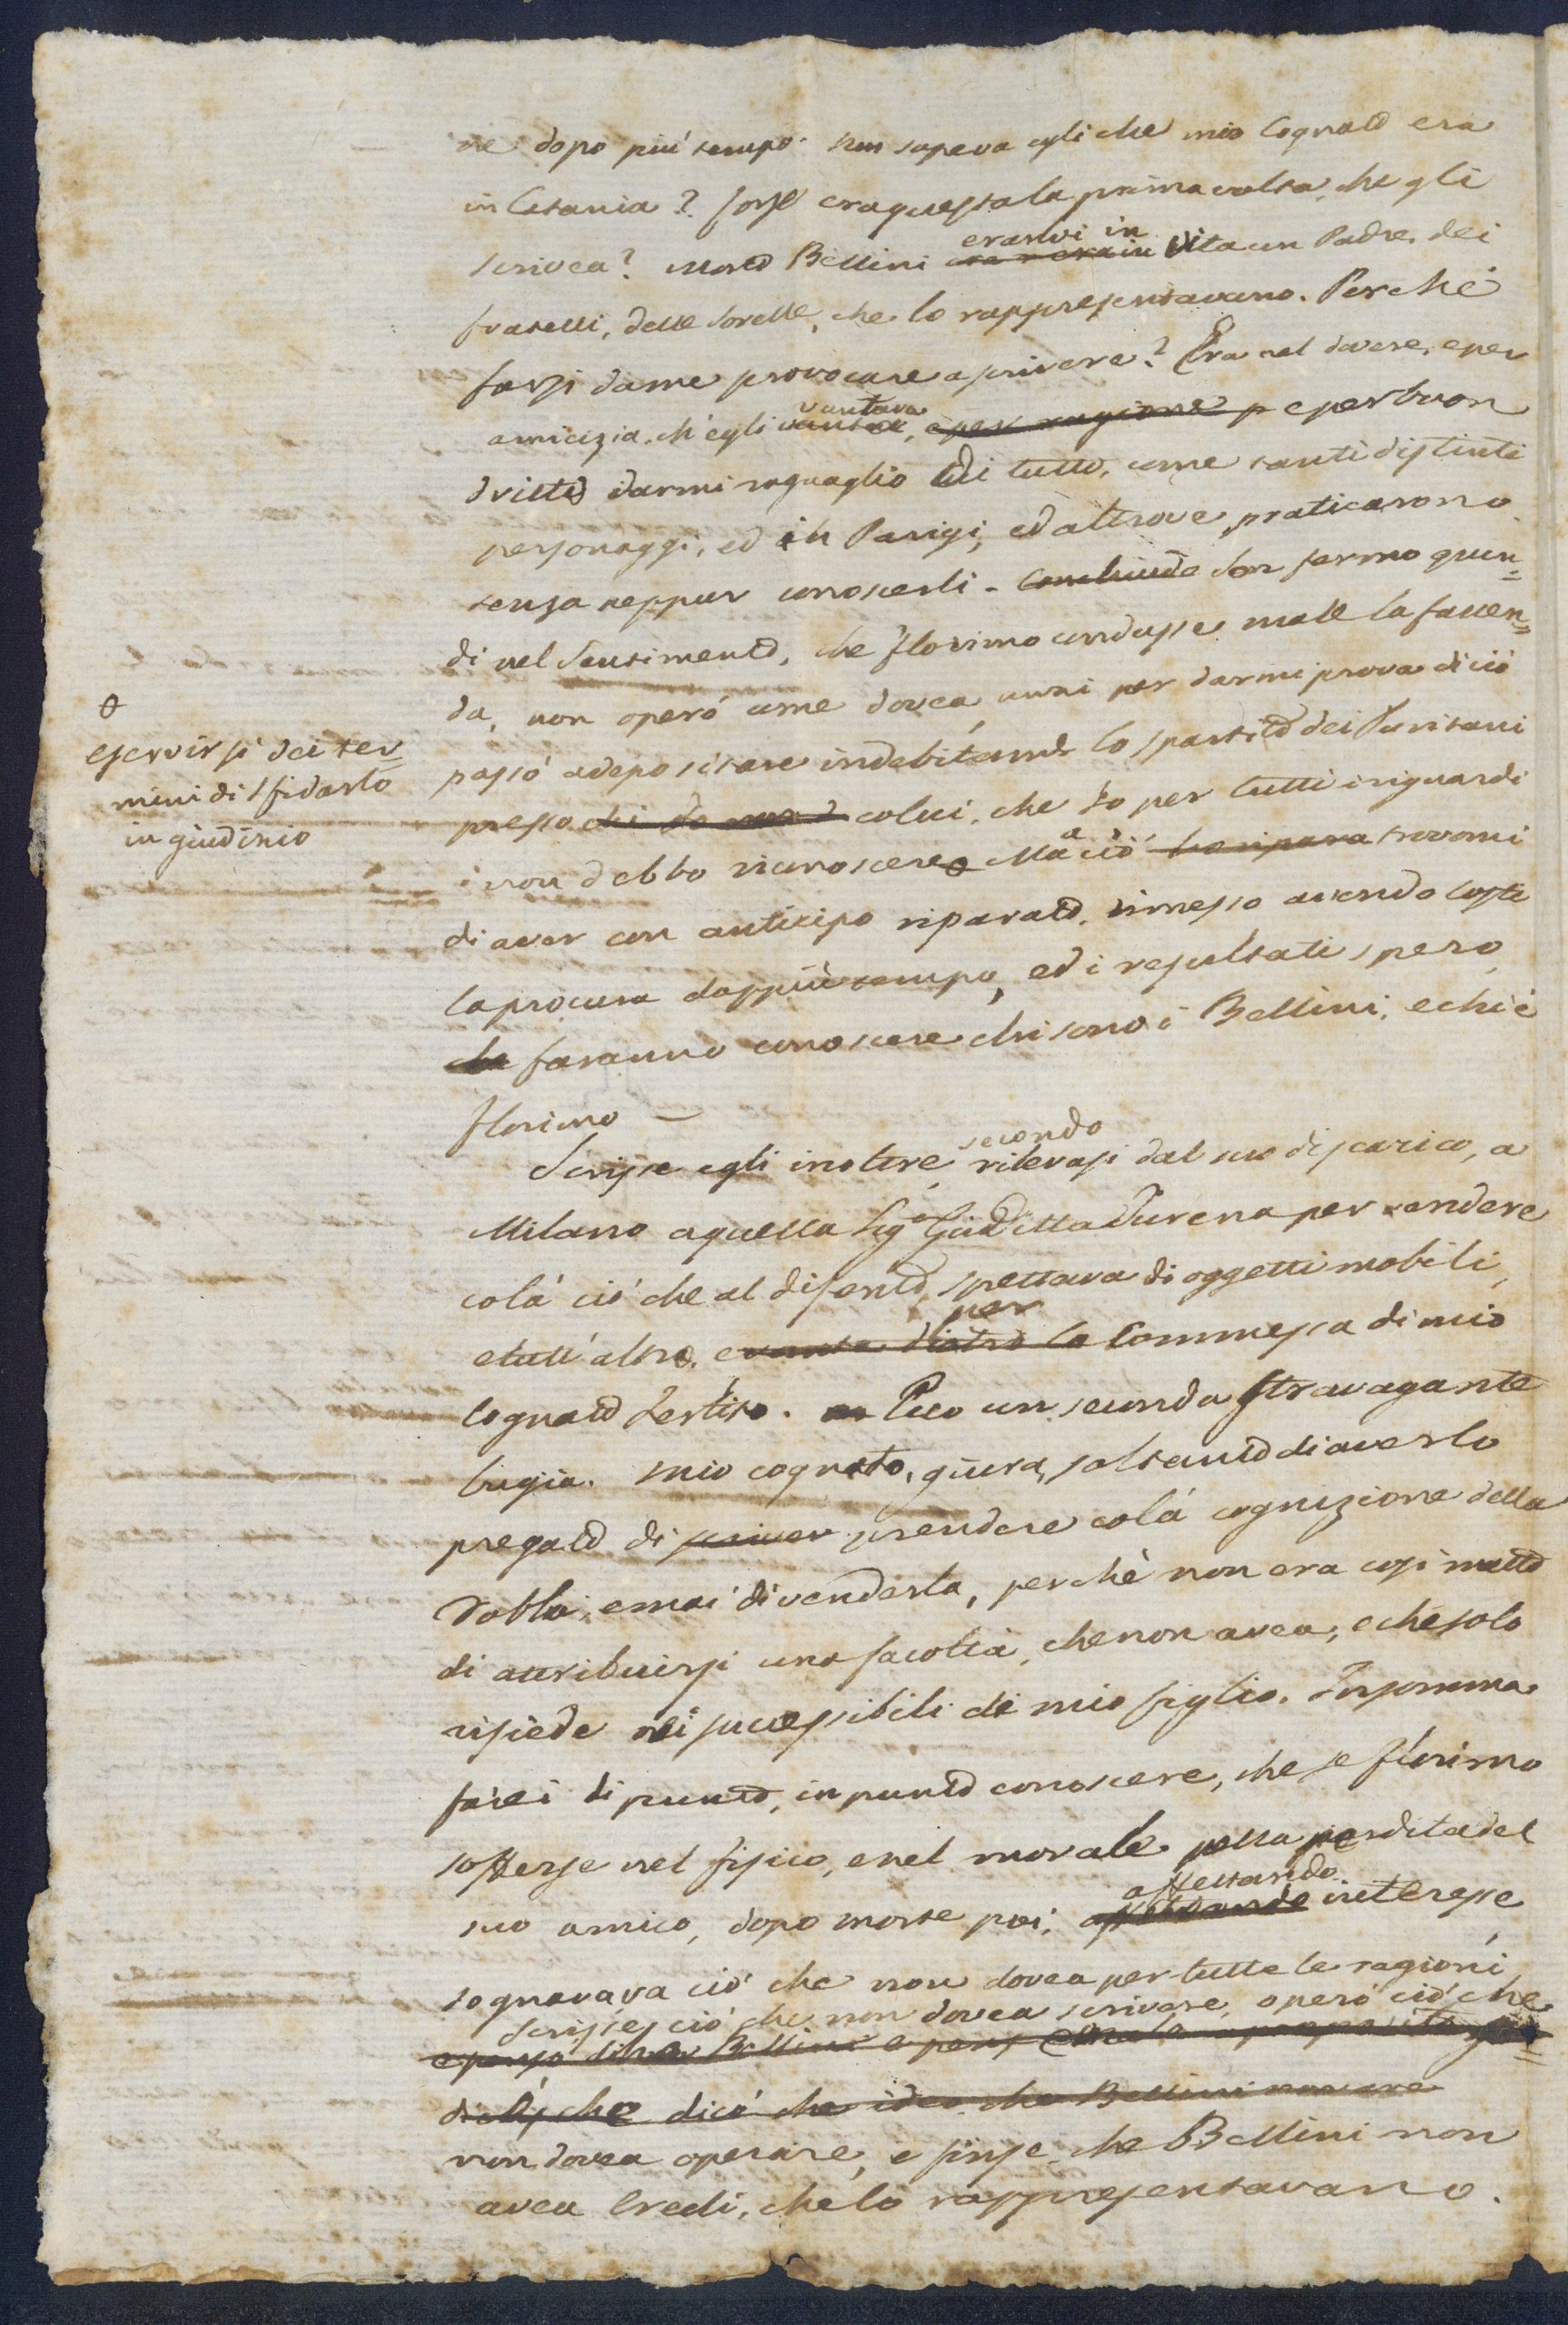 ne dopo più tempo. non sapeva egli che mio Cognato era
in Catania? forse era questa la prima volta, che gli
scrivea? Morto Bellini eranvi in vita un Padre, dei
fratelli, delle sorelle, che lo rappresentavano. Perché
farsi da me provocare a scrivere? Era nel dovere, e per
amicizia, ch'egli vantava vantava, e per ragione p e per buon
dritto darmi raguaglio di tutto, come tanti distinti
personaggi, ed in Parigi, ed altrove praticarono
senza neppur conoscerli - Conchiude Son fermo quin=
di nel Sentimento, che Florimo condusse male la facen=
da, non operò come dovea, anzi per darmi prova di ciò
passò a depositare indebitamte lo spartito dei Puritani
presso chi Io non d colui, che Io per tutti i riguardi
non debbo riconoscere Ma a ciò ho ripara trovomi
di aver con anticipo riparato, rimesso avendo costì
la procura da più tempo, ed i resultati spero
che faranno conoscere chi sono i Bellini, e chi è
Florimo —
θ
e servirsi dei ter=
mini di sfidarlo
in giudizio
Scrisse egli inoltre, secondo rilevasi dal suo discarico, a
Milano a quella Siga Giuditta Turena per vendere
colà ciò che al difonto spettava di oggetti mobili,
e tutt'altro, e vanta dietro la per Commessa di mio
Cognato Fertito. Ecco un seconda stravagante
bugia. Mio cognato, giura, soltanto di averlo
pregato di scriver prendere colà cognizione della
robba, e mai di venderla, perchè non era così matto
di attribuirsi una facoltà, che non avea, e che solo
risiede nei successibili di mio figlio. Insomma
farei di punto, in punto conoscere, che se Florimo
sofferse nel fisico, e nel morale pella perdita del
suo amico, dopo morte poi, affettando affettando interesse
sognavava ciò che non dovea per tutte le ragioni,
Scrisse, ciò che non dovea scrivere, operò ciò che
non dovea operare, e finse, che Bellini non
avea Eredi, che lo rappresentavano.